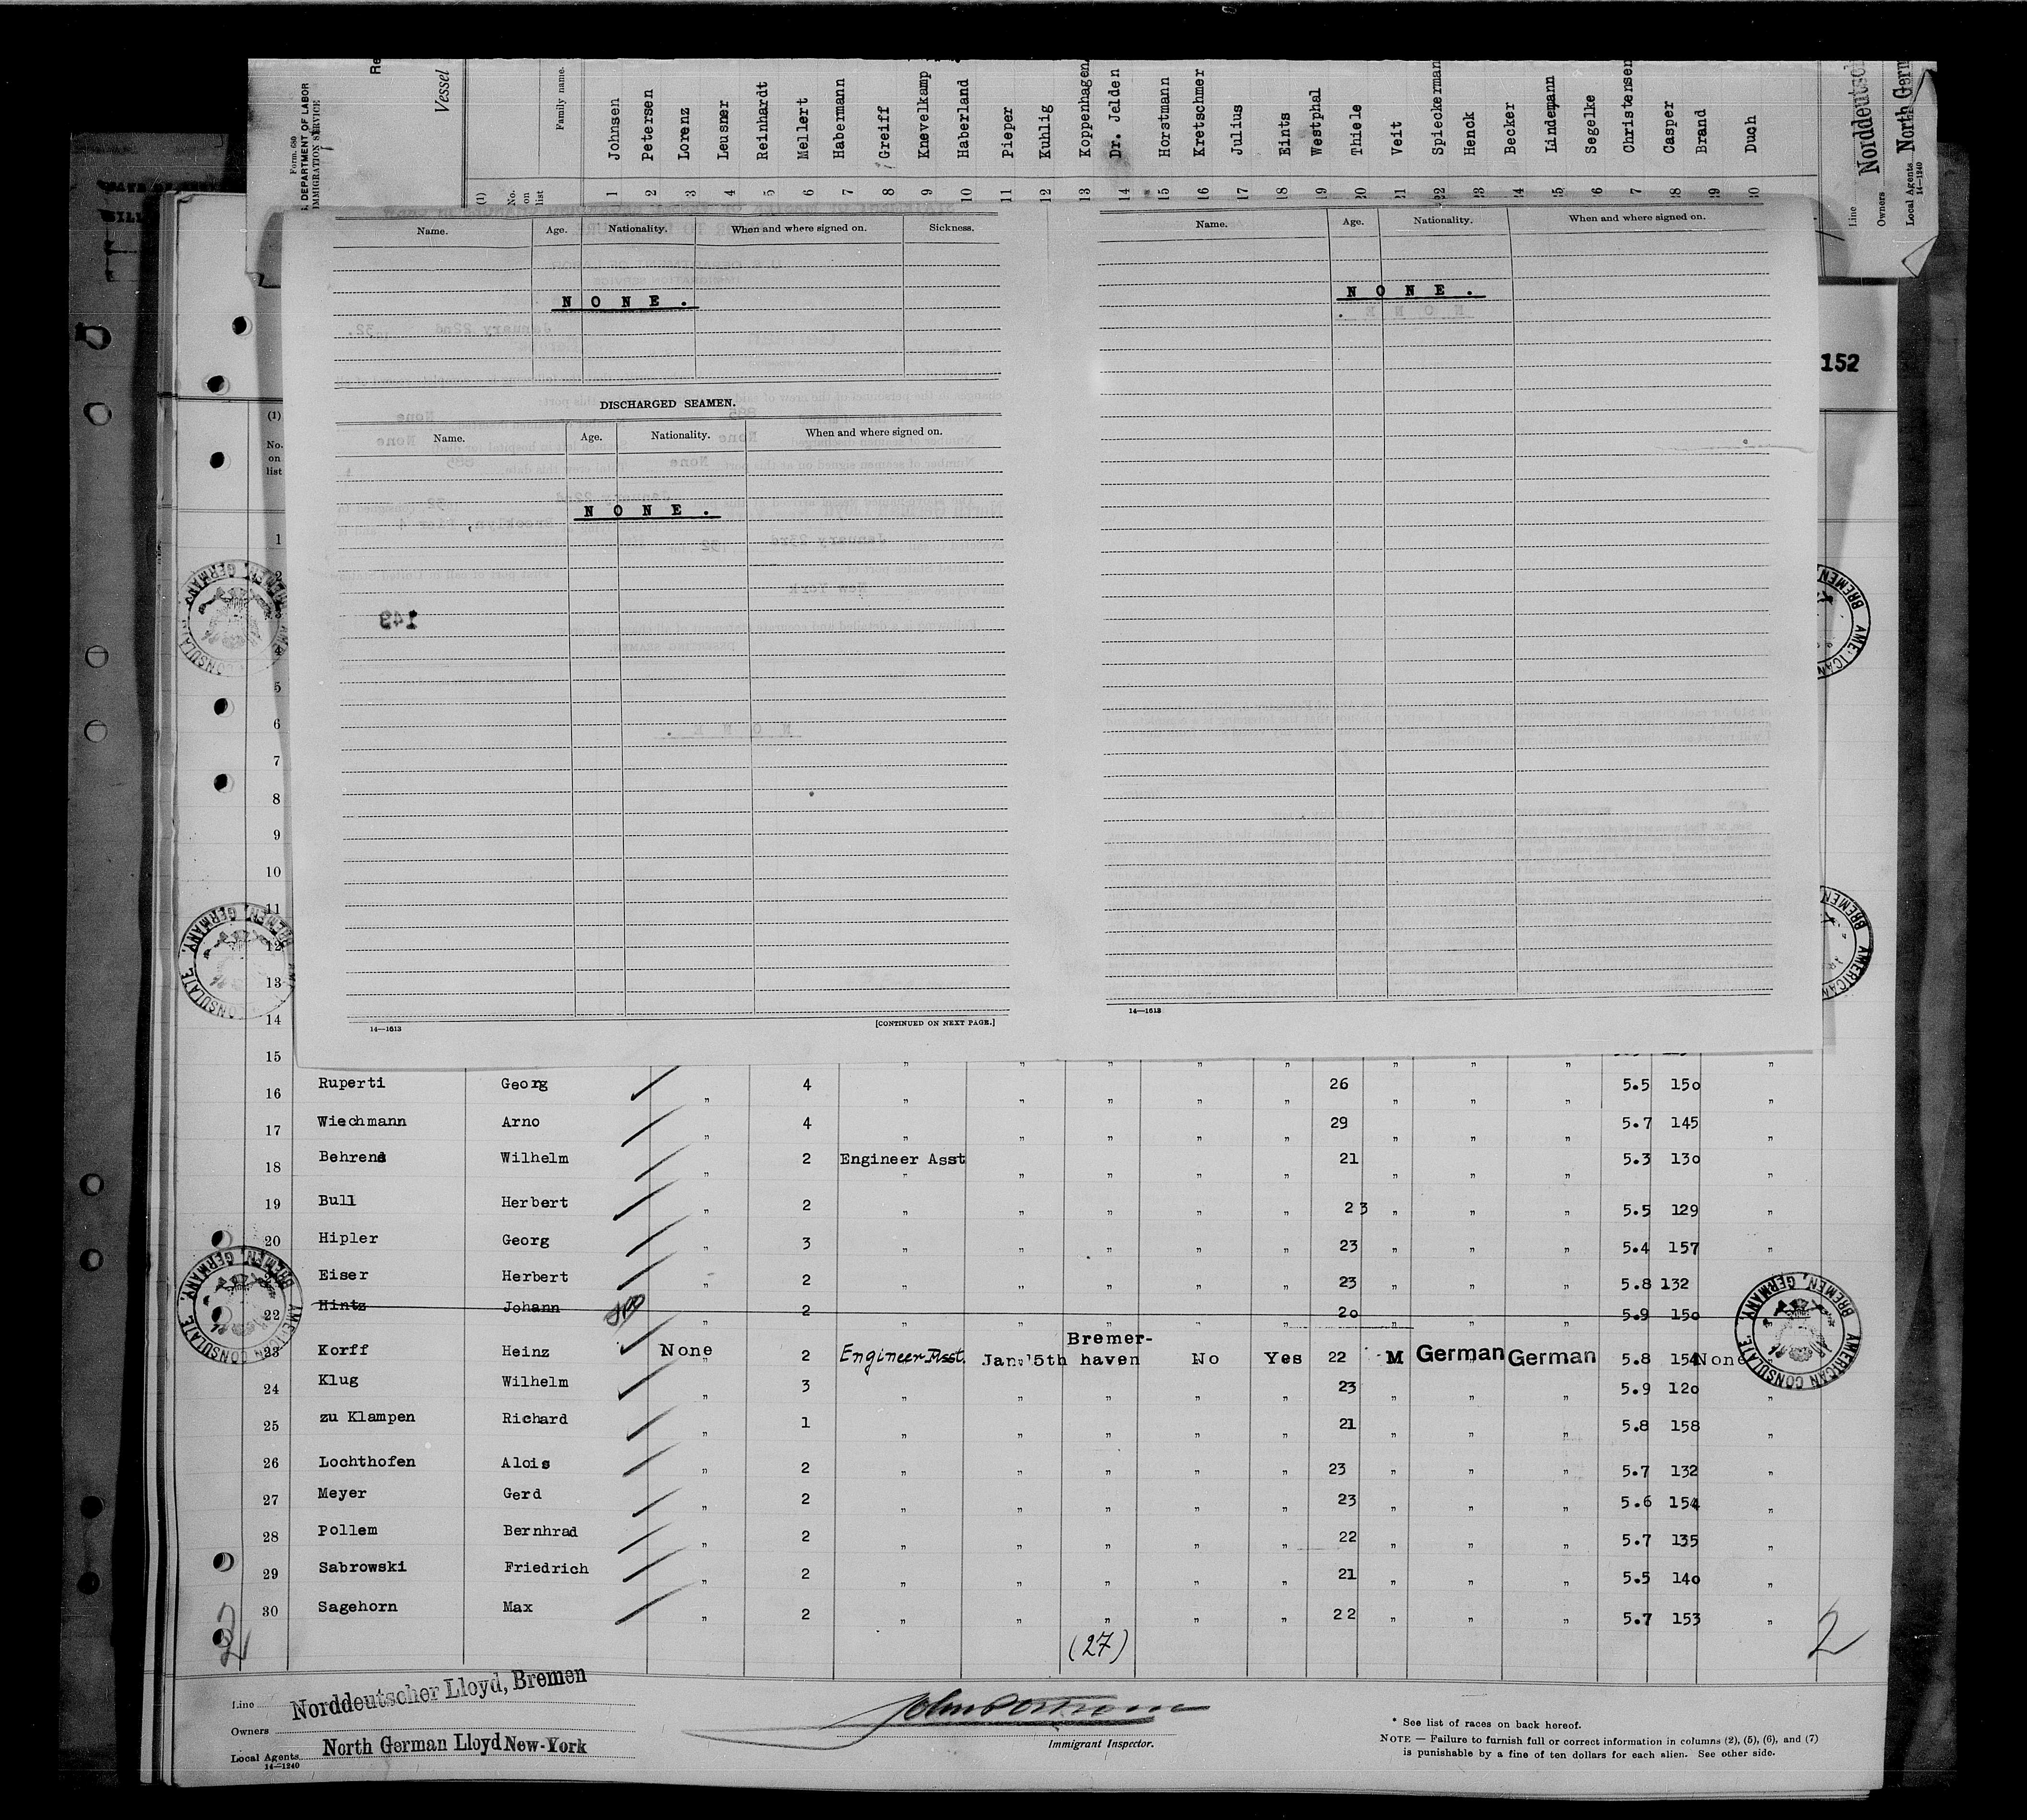 Form. 680
DEPARTMENT OF LABOR
IMMIGRATION SERVICE
Vessel
(1)
No. on list
Family name.
1 Johnsen
2 Petersen
3 Lorenz
4 Leusner
5 Reinhardt
6 Mellert
7 Habermann
8 Greiff
9 Knevelkamp
10 Haberland
11 Pieper
12 Kuhlig
13 Koppenhagen
14 Dr. Jelden
15 Horstmann
16 Kretschmer
17 Julius
18 Eints
19 Westphal
20 Thiele
21 Veit
22 Spieckerman
23 Henck
24 Becker
25 Lindemann
26 Segelke
7 Christensen
28 Casper
29 Brand
30 Duch
Line Norddeutsch
Owners
Local Agents North Germ
14—1240
Name. Age. Nationality. When and where signed on. Sickness.
NONE.
DISCHARGED SEAMEN.
Name. Age. Nationality. When and where signed on.
NONE.
149
14—1613 [CONTINUED ON NEXT PAGE.]
Name. Age. Nationality. When and where signed on.
NONE.
14—1613
152
(1)
No. on list
1
2
3
4
5
6
7
8
9
10
11
12
13
14
15
16 Ruperti Georg " 4 " " " " " 26 " " " 5.5 150 "
17 Wiechmann Arno " 4 " " " " " 29 " " " 5.7 145 "
18 Behrens Wilhelm " 2 Engineer Asst " " " " 21 " " " 5.3 130 "
19 Bull Herbert " 2 " " " " " 23 " " " 5.5 129 "
20 Hipler Georg " 3 " " " " " 23 " " " 5.4 157 "
Eiser Herbert " 2 " " " " " 23 " " " 5.8 132 "
22 Hintz Johann " 2 " " " " " 20 " " " 5.9 150
23 Korff Heinz None 2 Engineer Asst. Jan. 15th Bremer-haven No Yes 22 M German German 5.8 154 None
24 Klug Wilhelm " 3 " " " " " 23 " " " 5.9 120 "
25 zu Klampen Richard " 1 " " " " " 21 " " " 5.8 158 "
26 Lochthofen Alois " 2 " " " " " 23 " " " 5.7 132 "
27 Meyer Gerd " 2 " " " " " 23 " " " 5.6 154 "
28 Pollem Bernhrad " 2 " " " " " 22 " " " 5.7 135 "
29 Sabrowski Friedrich " 2 " " " " " 21 " " " 5.5 140 "
30 Sagehorn Max " 2 " " " " " 22 " " " 5.7 153 "
(27)
2
2
AMERICAN CONSULATE BREMEN, GERMANY.
Line Norddeutscher Lloyd, Bremen
Owners
Local Agents North German Lloyd New-York
14—1240
Immigrant Inspector.
* See list of races on back hereof.
NOTE — Failure to furnish full or correct information in columns (2), (5), (6), and (7)
is punishable by a fine of ten dollars for each alien. See other side.